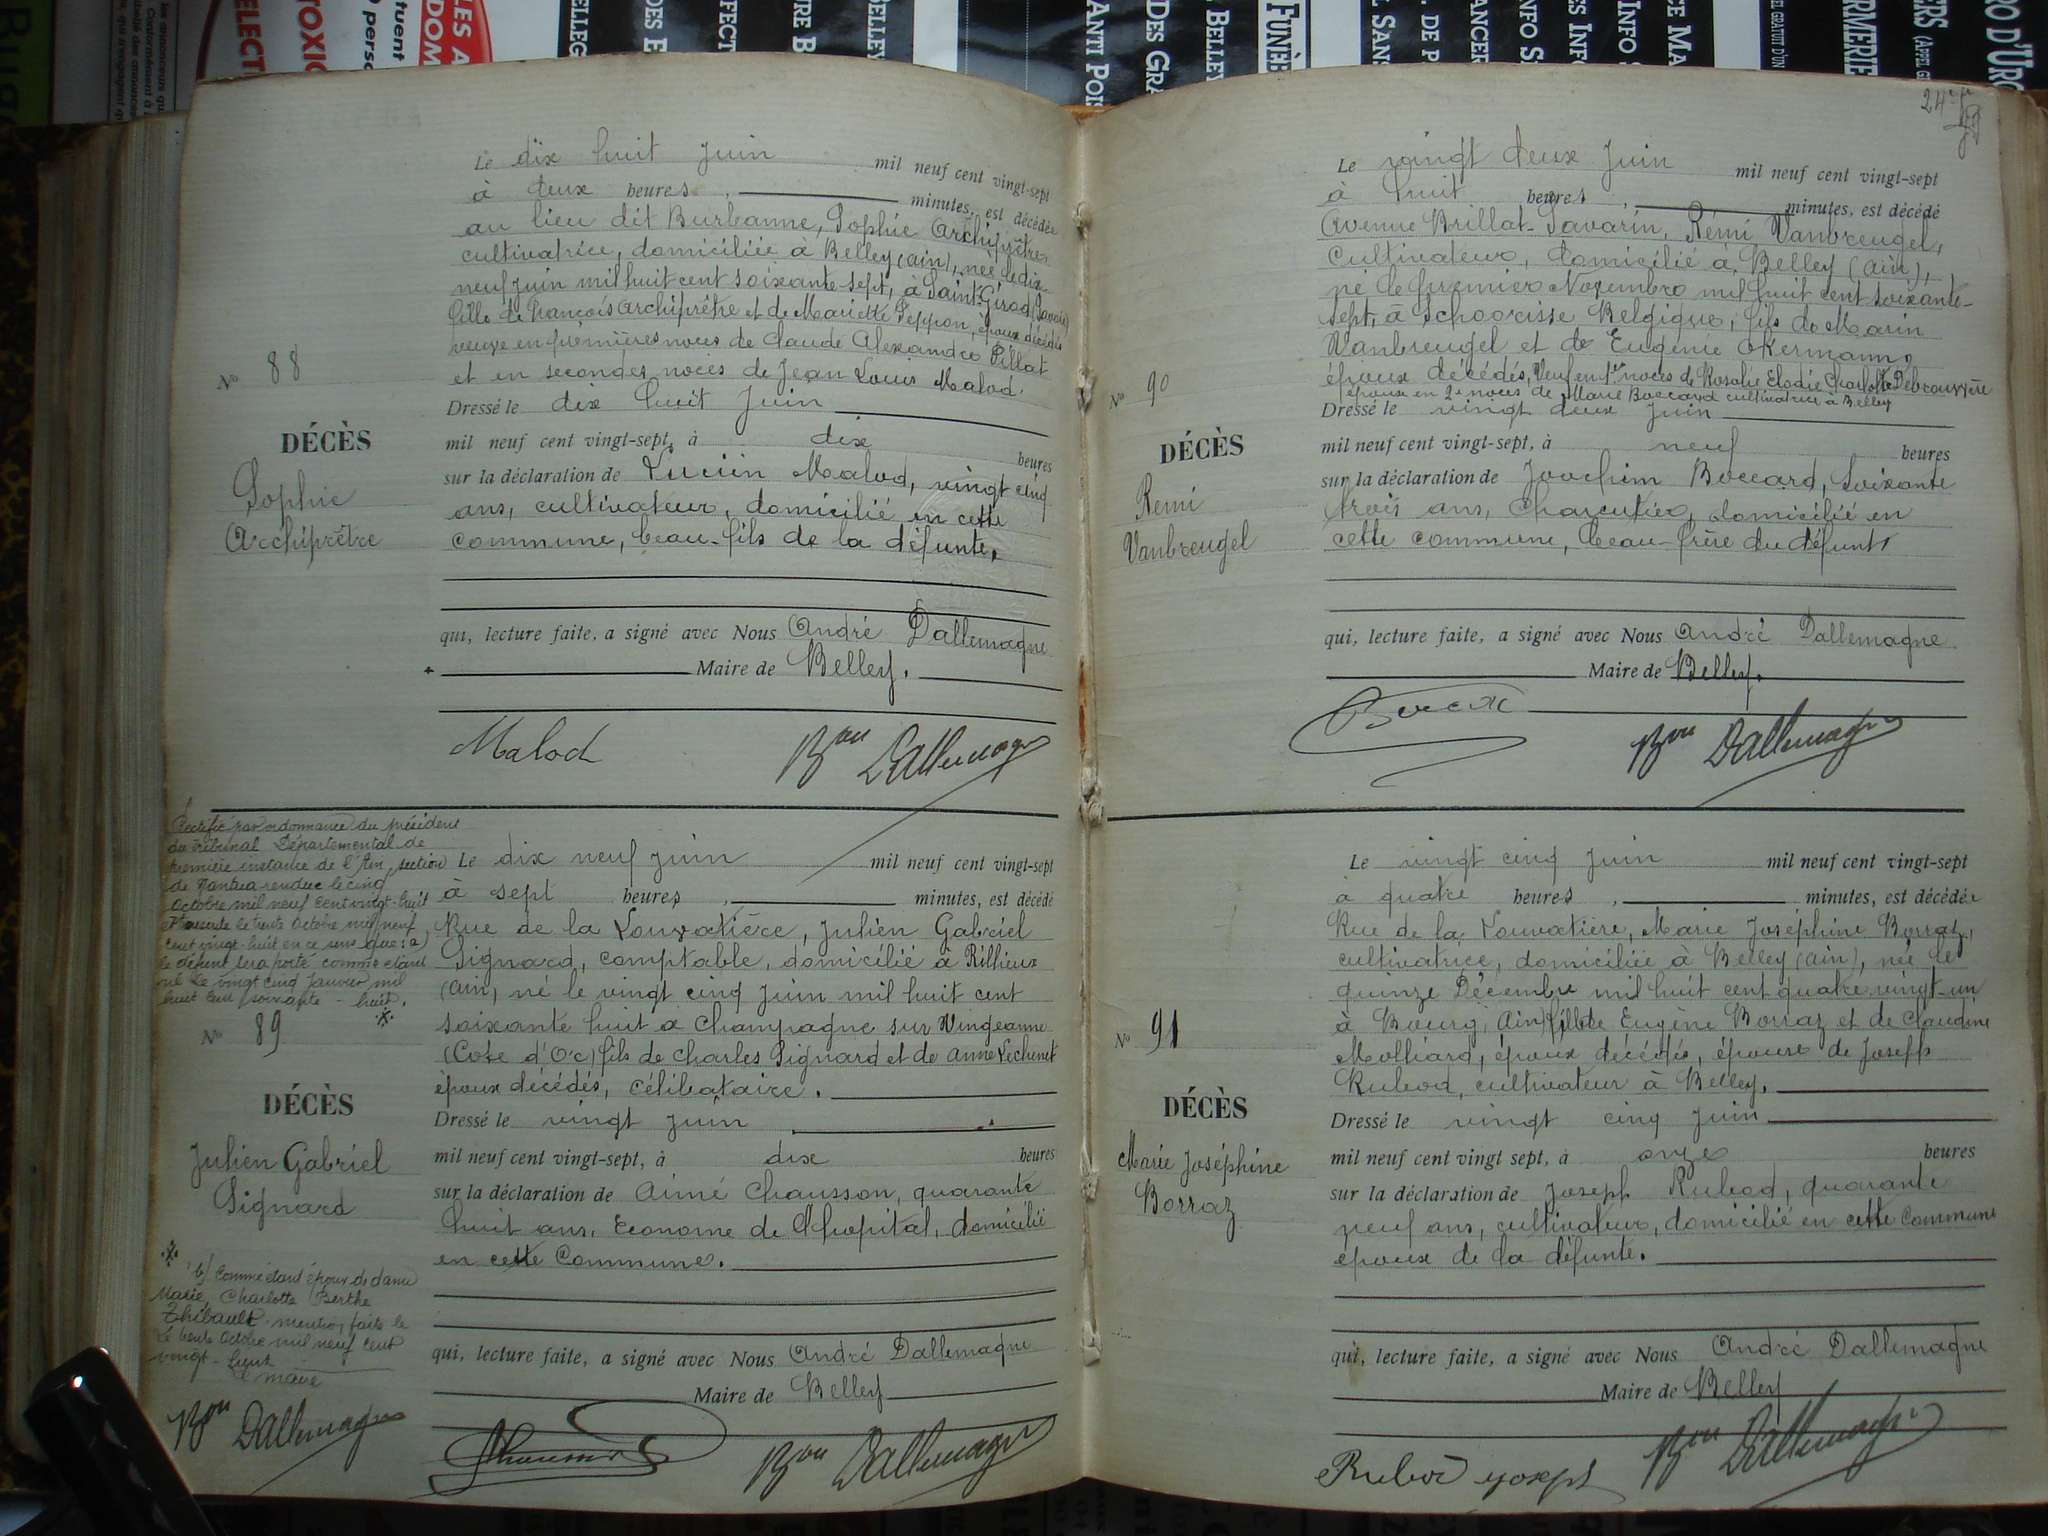 24e
Le dix huit Juin mil neuf cent vingt-sept
à deux heures, minutes, est décédée
au lieu dit Burbanne, Sophie Archiprêtre
cultivatrice, domiciliée à Belley (Ain), née le dix-
neuf juin mil huit cent soixante-sept, à Saint-Girod (Savoie)
fille de François Archiprêtre et de Mariette Peppon, époux décédés
veuve en premières noces de Claude Alexandre Pillat
et en secondes noces de Jean Louis Malod.
Nº 88
Dressé le dix huit Juin
DÉCÈS
Sophie
Archiprêtre
mil neuf cent vingt-sept, à dix heures
sur la déclaration de Lucien Malod, vingt cinq
ans, cultivateur, domicilié en cette
commune, beau-fils de la défunte,
qui, lecture faite, a signé avec Nous André Dallemagne
Maire de Belley.
Malod Bon Dallemagne
Rectifié par ordonnance du président
du Tribunal Départemental de
première instance de l'Ain, section
de Nantua rendue le cinq
Octobre mil neuf cent vingt-huit
le trente Octobre mil neuf
cent vingt-huit en ce sens que : a)
le défunt sera porté comme étant
né le vingt cinq Janvier mil
huit cent soixante-huit.
Le dix neuf Juin mil neuf cent vingt-sept
à sept heures, minutes, est décédé
Rue de la Louvatière, Julien Gabriel
Signard, comptable, domicilié à Rillieux
(Ain), né le vingt cinq Juin mil huit cent
soixante huit à Champagne sur Vingeanne
(Cote d'Or) fils de Charles Signard et de Anne Lechenet
époux décédés, célibataire.
Nº 89
DÉCÈS
Julien Gabriel
Signard
Dressé le vingt Juin
mil neuf cent vingt-sept, à dix heures
sur la déclaration de Aimé Chausson, quarante
huit ans, Econome de l'hopital, domicilié
en cette Commune.
b) Comme étant époux de dame
Marie, Charlotte Berthe
Thibault. mention faite le
trente Octobre mil neuf cent
vingt-huit
Le maire
Bon Dallemagne
qui, lecture faite, a signé avec Nous André Dallemagne
Maire de Belley
Chausson Bon Dallemagne
Le vingt deux Juin mil neuf cent vingt-sept
à huit heures, minutes, est décédé
Avenue Brillat-Savarin, Rémi Vanbreugel,
Cultivateur, domicilié à Belley (Ain),
né le premier Novembre mil huit cent soixante-
sept, à Schoorisse Belgique, fils de Marin
Vanbreugel et de Eugénie Okermann,
époux décédés, Veuf en 1er noces de Rosalie Elodie Charlotte Debrouwère
époux en 2e noces de Marie Boccard cultivatrice à Belley
Nº 90
Dressé le vingt deux Juin
DÉCÈS
Rémi
Vanbreugel
mil neuf cent vingt-sept, à neuf heures
sur la déclaration de Joachim Boccard, soixante
trois ans, Charcutier, domicilié en
cette commune, beau-frère du défunt
qui, lecture faite, a signé avec Nous André Dallemagne
Maire de Belley.
Bon Dallemagne
Le vingt cinq Juin mil neuf cent vingt-sept
à quatre heures, minutes, est décédée
Rue de la Louvatière, Marie Joséphine Borraz,
cultivatrice, domiciliée à Belley (Ain), née le
quinze Décembre mil huit cent quatre vingt-un
à Bourg, (Ain) fille de Eugène Borraz et de Claudine
Molliard, époux décédés, épouse de Joseph
Rubod, cultivateur à Belley.
Nº 91
DÉCÈS
Marie Joséphine
Borraz
Dressé le vingt cinq Juin
mil neuf cent vingt sept, à onze heures
sur la déclaration de Joseph Rubod, quarante
neuf ans, cultivateur, domicilié en cette Commune
époux de la défunte.
qui, lecture faite, a signé avec Nous André Dallemagne
Maire de Belley
Rubod joseph Bon Dallemagne